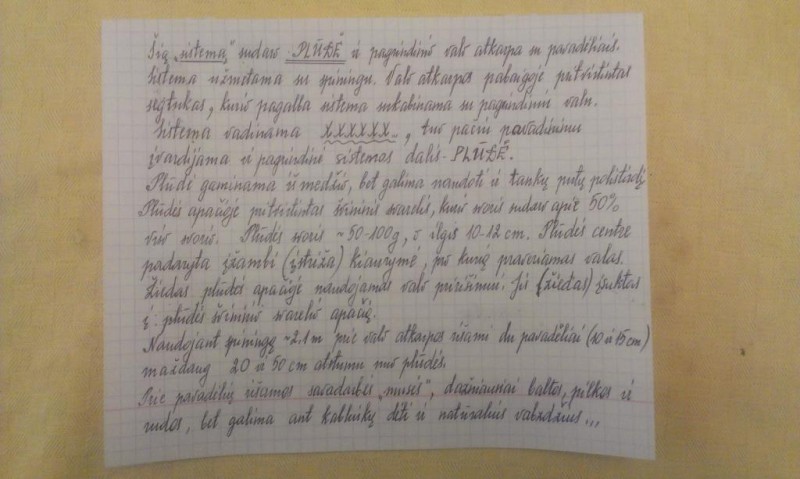 Šią „sistemą" sudaro PLŪDĖ ir pagrindinio valo atkarpa su pavadėliais.
Sistema užmetama su spiningu. Valo atkarpos pabaigoje pritvirtintas
segtukas, kurio pagalba sistema sukabinama su pagrindiniu valu.
Sistema vadinama XXXXXX, tuo pačiu pavadinimu
įvardijama ir pagrindinė sistemos dalis - PLŪDĖ.
Plūdė gaminama iš medžio, bet galima naudoti ir tankų putų polistirolį.
Plūdės apačioje pritvirtintas švininis svarelis, kurio svoris sudaro apie 50%
viso svorio. Plūdės svoris ~ 50-100g, o ilgis 10-12 cm. Plūdės centre
padaryta įžambi (įstriža) kiaurymė, pro kurią praveriamas valas.
Žiedas plūdės apačioje naudojamas valo pririšimui. Jis (žiedas) įsuktas
į plūdės švininio svarelio apačią.
Naudojant spiningą ~2.1m prie valo atkarpos rišami du pavadėliai (10 ir 15 cm)
maždaug 20 ir 50 cm atstumu nuo plūdės.
Prie pavadėlių rišamos savadarbės „musės", dažniausiai baltos, pilkos ir
rudos, bet galima ant kabliukų dėti ir natūralius vabzdžius...